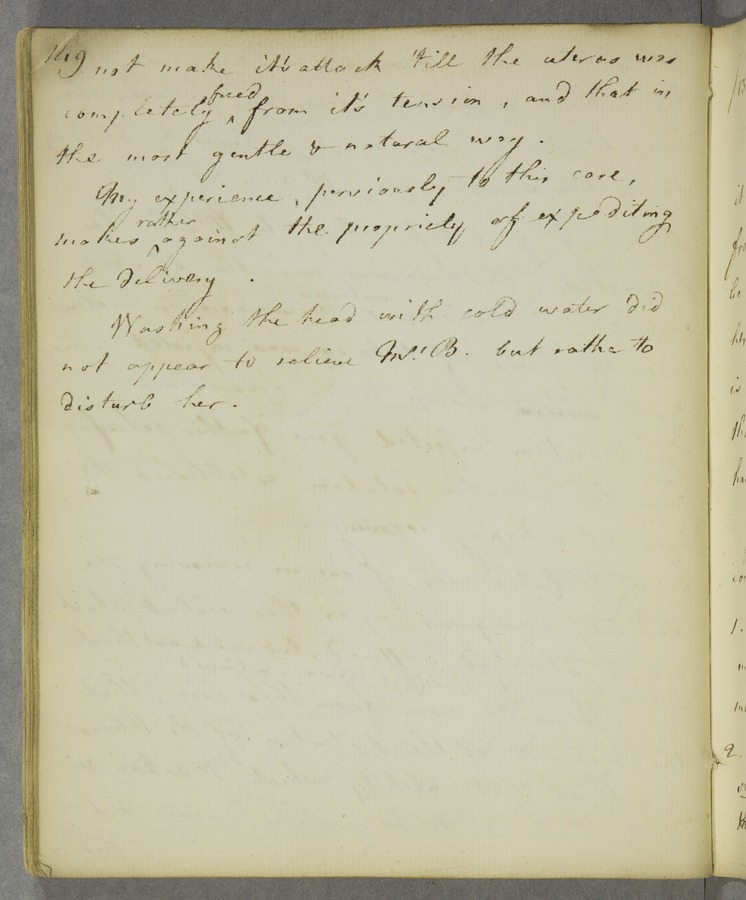 149 not make it's attack 'till the uterus was
completely freed from it's tension, and that in
the most gentle & natural way.
My experience, previously to this case,
makes rather against the propriety of expediting
the delivery.
Washing the head with cold water did
not appear to relieve Mrs. B. but rather to
disturb her.